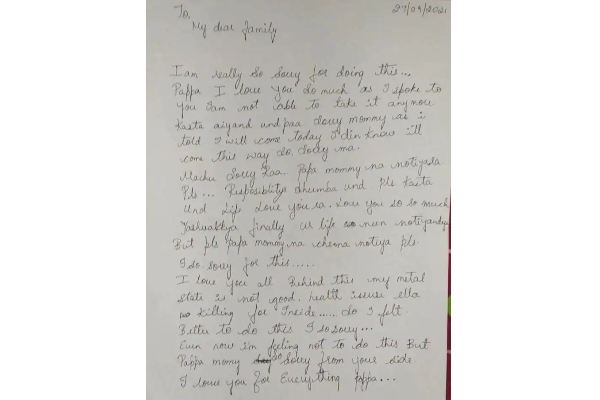 27/09/2021
To,
My dear family
I am really so sorry for doing this...
Pappa I love you so much as I spoke to
you I am not able to take it anymore
Kasta aiyand und paa sorry mommy as i
told I will come today I din know i'll
come this way so sorry ma.
Machu Sorry Raa. Papa mommy na
Pls... und pls Kasta
Und Life Love you ra. Love you so so much
finally ur life neen
But pls papa mommy na pls
I so sorry for this.....
I love you all Behind this my metal
state is not good. health ella
killing for Inside...... So I felt
Better to do this I so sorry...
Even now i'm feeling not to do this But
Pappa momy Sorry from your side.
I love you for Everything Pappa...